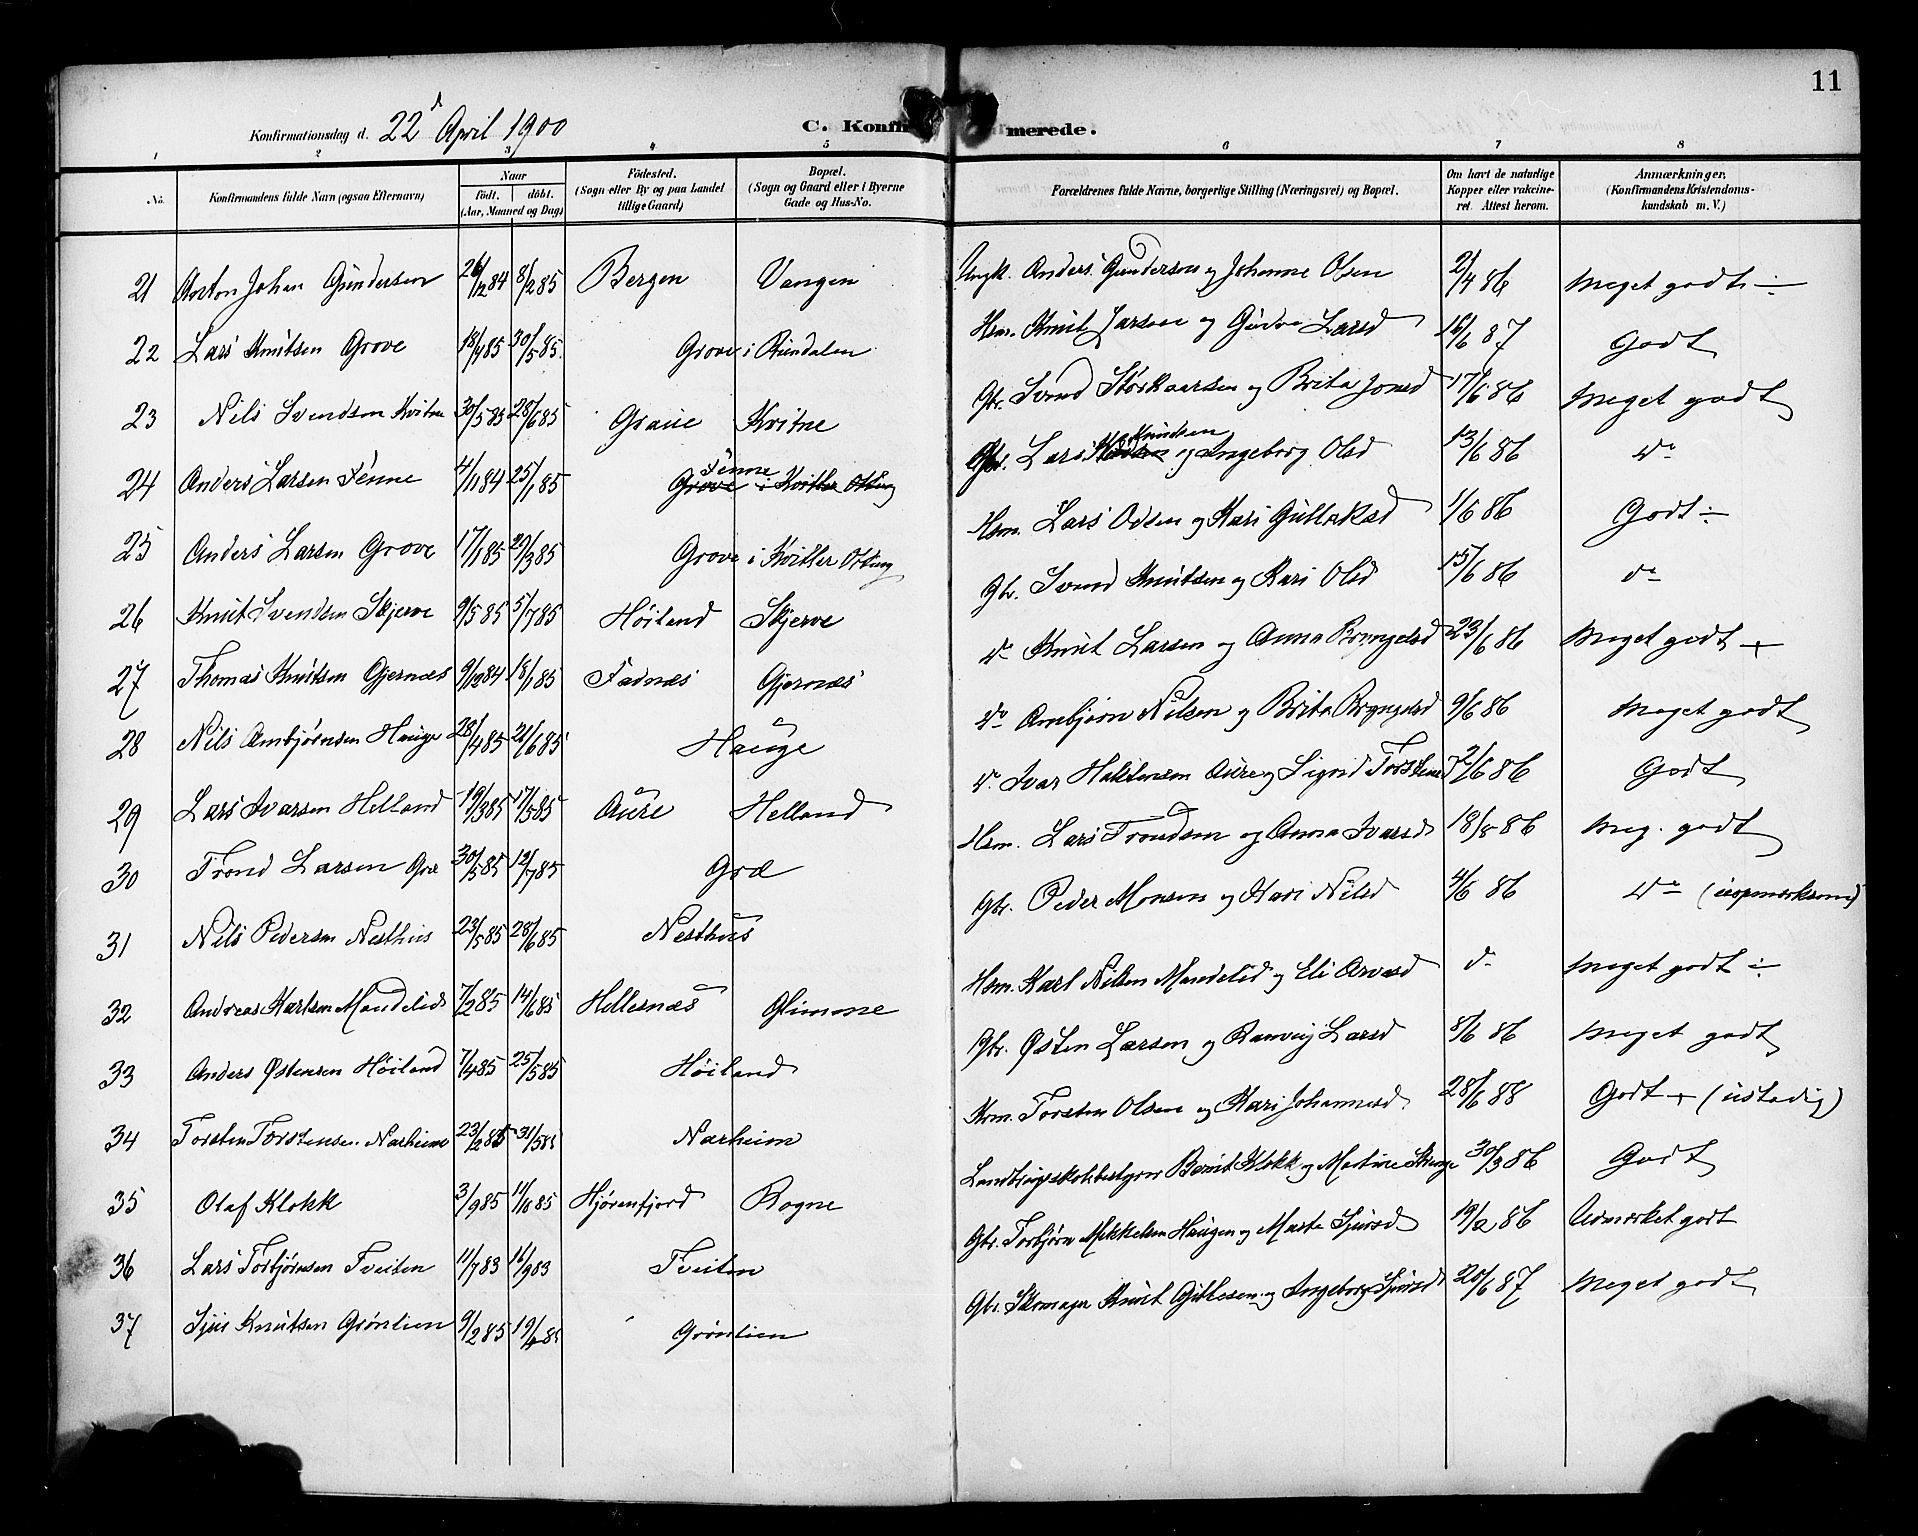 11
Konfirmationsdag d. 22d April 1900 C. Konfirmerede.
1 2 3 4 5 6 7 8
No. Konfirmandens fulde Navn (ogsaa Efternavn) Naar født. døbt. (Aar, Maaned og Dag) Fødested. (Sogn eller By og paa Landet tillige Gaard) Bopæl. (Sogn og Gaard eller i Byerne Gade og Hus-No. Forældrenes fulde Navne, borgerlige Stilling (Næringsvei) og Bopæl. Om havt de naturlige Kopper eller vakcineret. Attest herom. Anmærkninger, (Konfirmandens Kristendomskundskab m. V.)
21 Anton Johan Gundersen 26/12 84 8/2 85 Bergen Vangen Ungk. Anders Gundersen og Johanne Olsen 2/4 86 Meget godt ÷
22 Lars Knutsen Grove 18/4 85 30/5 85 Grove i Rundalen Hsm. Knut Larsen og Gudve Larsd 16/6 87 Godt
23 Nils Svendsen Kvitne 30/5 85 28/6 85 Graue Kvitne Gbr. Svend Storkaarsen og Brita Jonsd 17/6 86 Meget godt
24 Anders Larsen Fenne 4/11 84 25/1 85 Fenne Grove i Kvitler Otting Gbr. Lars Knudsen og Ingeborg Olsd 13/6 86 do
25 Anders Larsen Grove 17/1 85 29/3 85 Grove i Kvitler Otting Hsm. Lars Odsen og Kari Gullaksd 1/6 86 Godt ÷
26 Knut Svendsen Skjerve 9/5 85 5/7 85 Høiland Skjerve Gbr. Svend Knutsen og Kari Olsd 15/6 86 do
27 Thomas Knutsen Gjernæs 9/12 84 18/1 85 Fadnæs Gjernæs do Knut Larsen og Anna Brynjelsd 23/6 86 Meget godt +
28 Nils Arnbjørnsen Hauge 28/4 85 21/6 85 Hauge do Arnbjørn Nilsen og Brita Bryngelsd 9/6 86 Meget godt
29 Lars Ivarsen Helland 19/3 85 17/5 85 Aure Helland do Ivar Halstensen Aure og Sigrid Torstensd 2/6 86 Godt
30 Trond Larsen Græ 30/5 85 12/7 85 Græ Hsm. Lars Trondsen og Anna Ivarsd 18/8 86 Meg. godt
31 Nils Pedersen Nesthus 23/5 85 28/6 85 Nesthus Gbr. Peder Monsen og Kari Nilsd 4/6 86 do (uopmærksom)
32 Andreas Karlsen Mandelid 7/2 85 14/6 85 Hellesnæs Glimme Hsm. Karl Nilsen Mandelid og Eli Arvesd do Meget godt ÷
33 Anders Østensen Høiland 7/4 85 25/5 85 Høiland Gbr. Østen Larsen og Ranveig Larsd 8/6 86 Meget godt
34 Torsten Torstensen Narheim 23/2 85 31/5 85 Narheim Hsm. Torsten Olsen og Kari Johannesd 28/6 88 Godt + (ustadig)
35 Olaf Klokk 3/9 85 11/10 85 Hjørenfjord Rogne Landbrugsskolebestyrer Bernt Klokk og Martine Strenge 30/3 86 Godt
36 Lars Torbjørnsen Tveiten 11/7 83 16/9 83 Tveiten Gbr. Torbjørn Mikkelsen Haugen og Marta Sjursd 19/2 86 Udmærket godt
37 Sjur Knutsen Grønlien 9/2 85 19/4 85 Grønlien Gbr. Skomager Knut Gitlesen og Ingeborg Sjursd 20/6 87 Meget godt